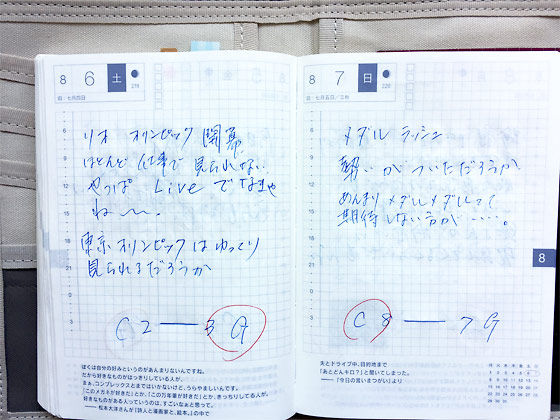 8 6 土
219
旧/七月四日
リオ オリンピック 開幕
ほとんど 仕事で 見られない
やっぱ Live でなきゃ
ね〜〜。
東京オリンピックはゆっくり
見られるだろうか
C 2 ── 3 G
ぼくは自分の好みというのがあんまりないんですね。
だから好きなものがはっきりしている人が、
まぁ、コンプレックスとまではいかないけど、うらやましいんです。
「このメガネが好きだ」とか、「この万年筆が好き」とか、きっちりしてる人が。
好きなものがある人っていうのは、すごいなぁと思って。
──松本大洋さんが『詩人と漫画家と、絵本。』の中で
8 7 日
220
旧/七月五日
メダル ラッシュ
勢いがついただろうか
あんまりメダルメダルって
期待しない方が‥‥。
C 8 ── 7 G
8
夫とドライブ中、目的地まで
「あとどんキロ?」と聞いてしまった。
──『今日の言いまつがい』より